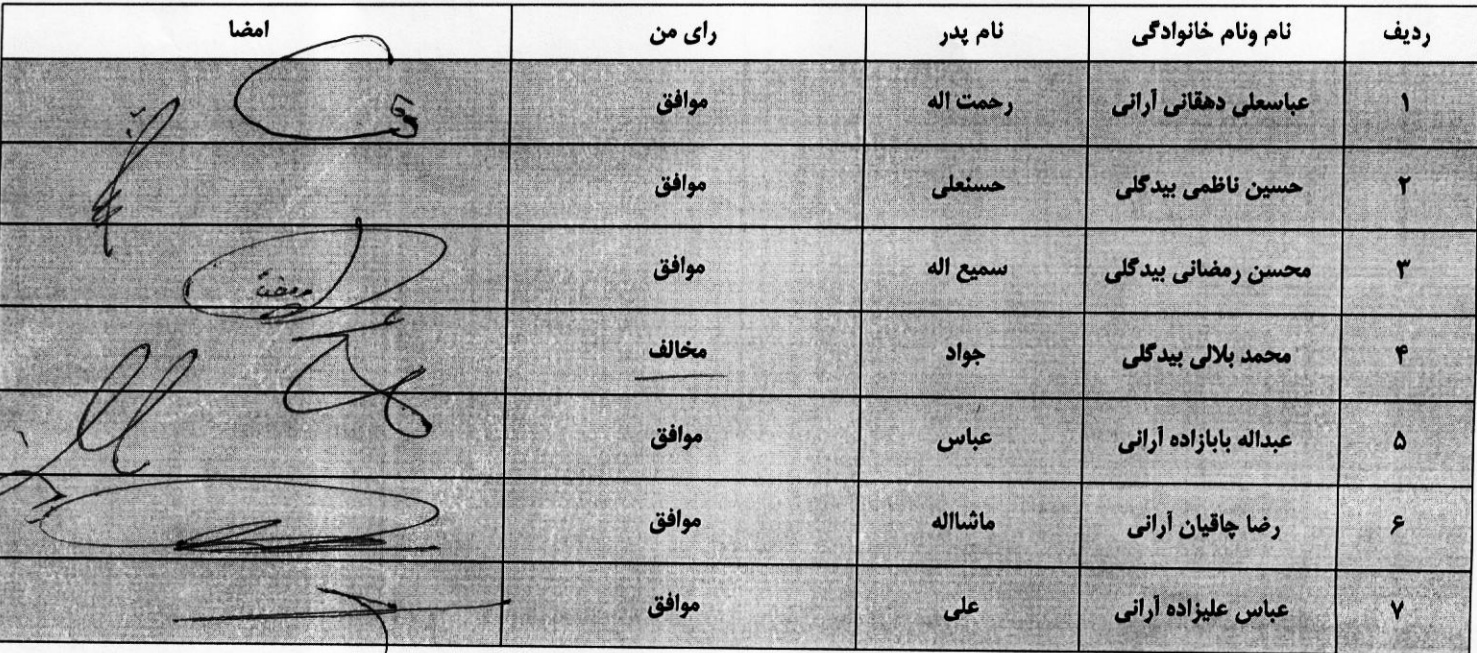 ردیف نام ونام خانوادگی نام پدر رای من امضا
۱ عباسعلی دهقانی آرانی رحمت اله موافق
۲ حسین ناظمی بیدگلی حسنعلی موافق
۳ محسن رمضانی بیدگلی سمیع اله موافق
۴ محمد بلالی بیدگلی جواد مخالف
۵ عبداله بابازاده آرانی عباس موافق
۶ رضا چاقیان آرانی ماشااله موافق
۷ عباس علیزاده آرانی علی موافق